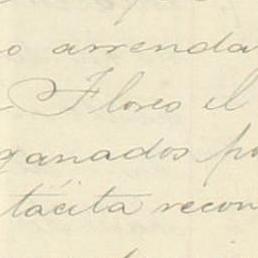 o arrenda
Flores el
ganados po
tácita recon